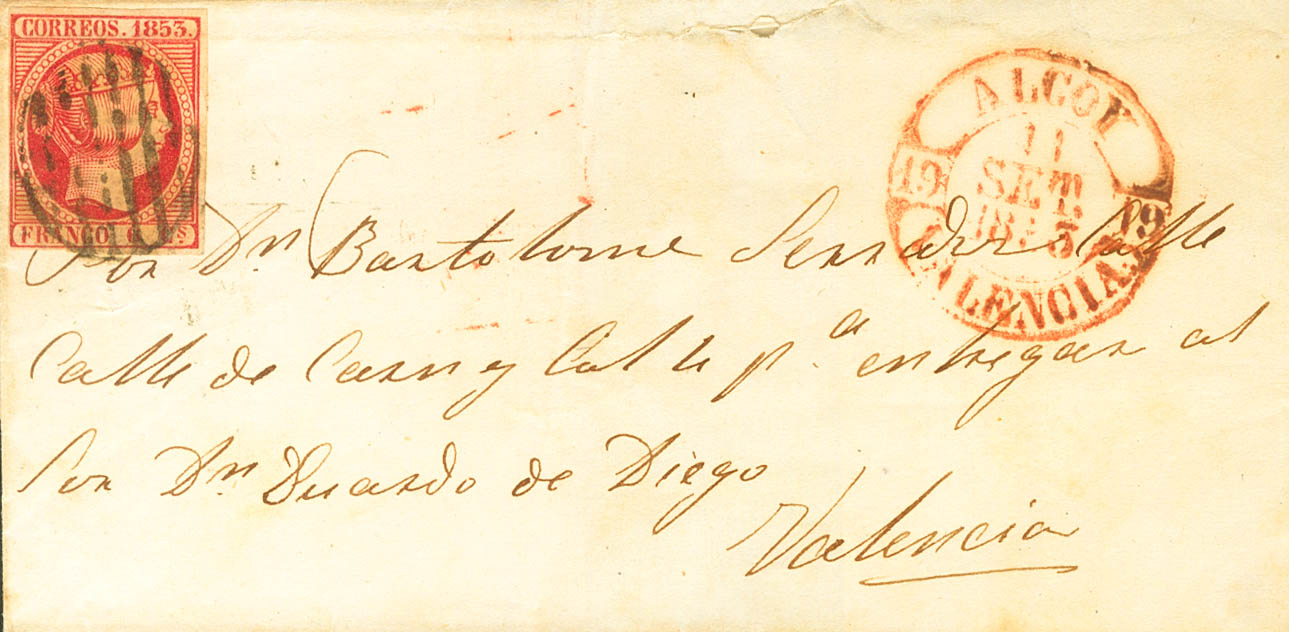 CORREOS. 1853.
FRANCO 6 Cs
ALCOY
11
SET.
1853
19 19
VALENCIA.
Sor Dn Bartolome Serrador Calle
Calle de y pa entregar al
Sor Dn Duardo de Diego
Valencia